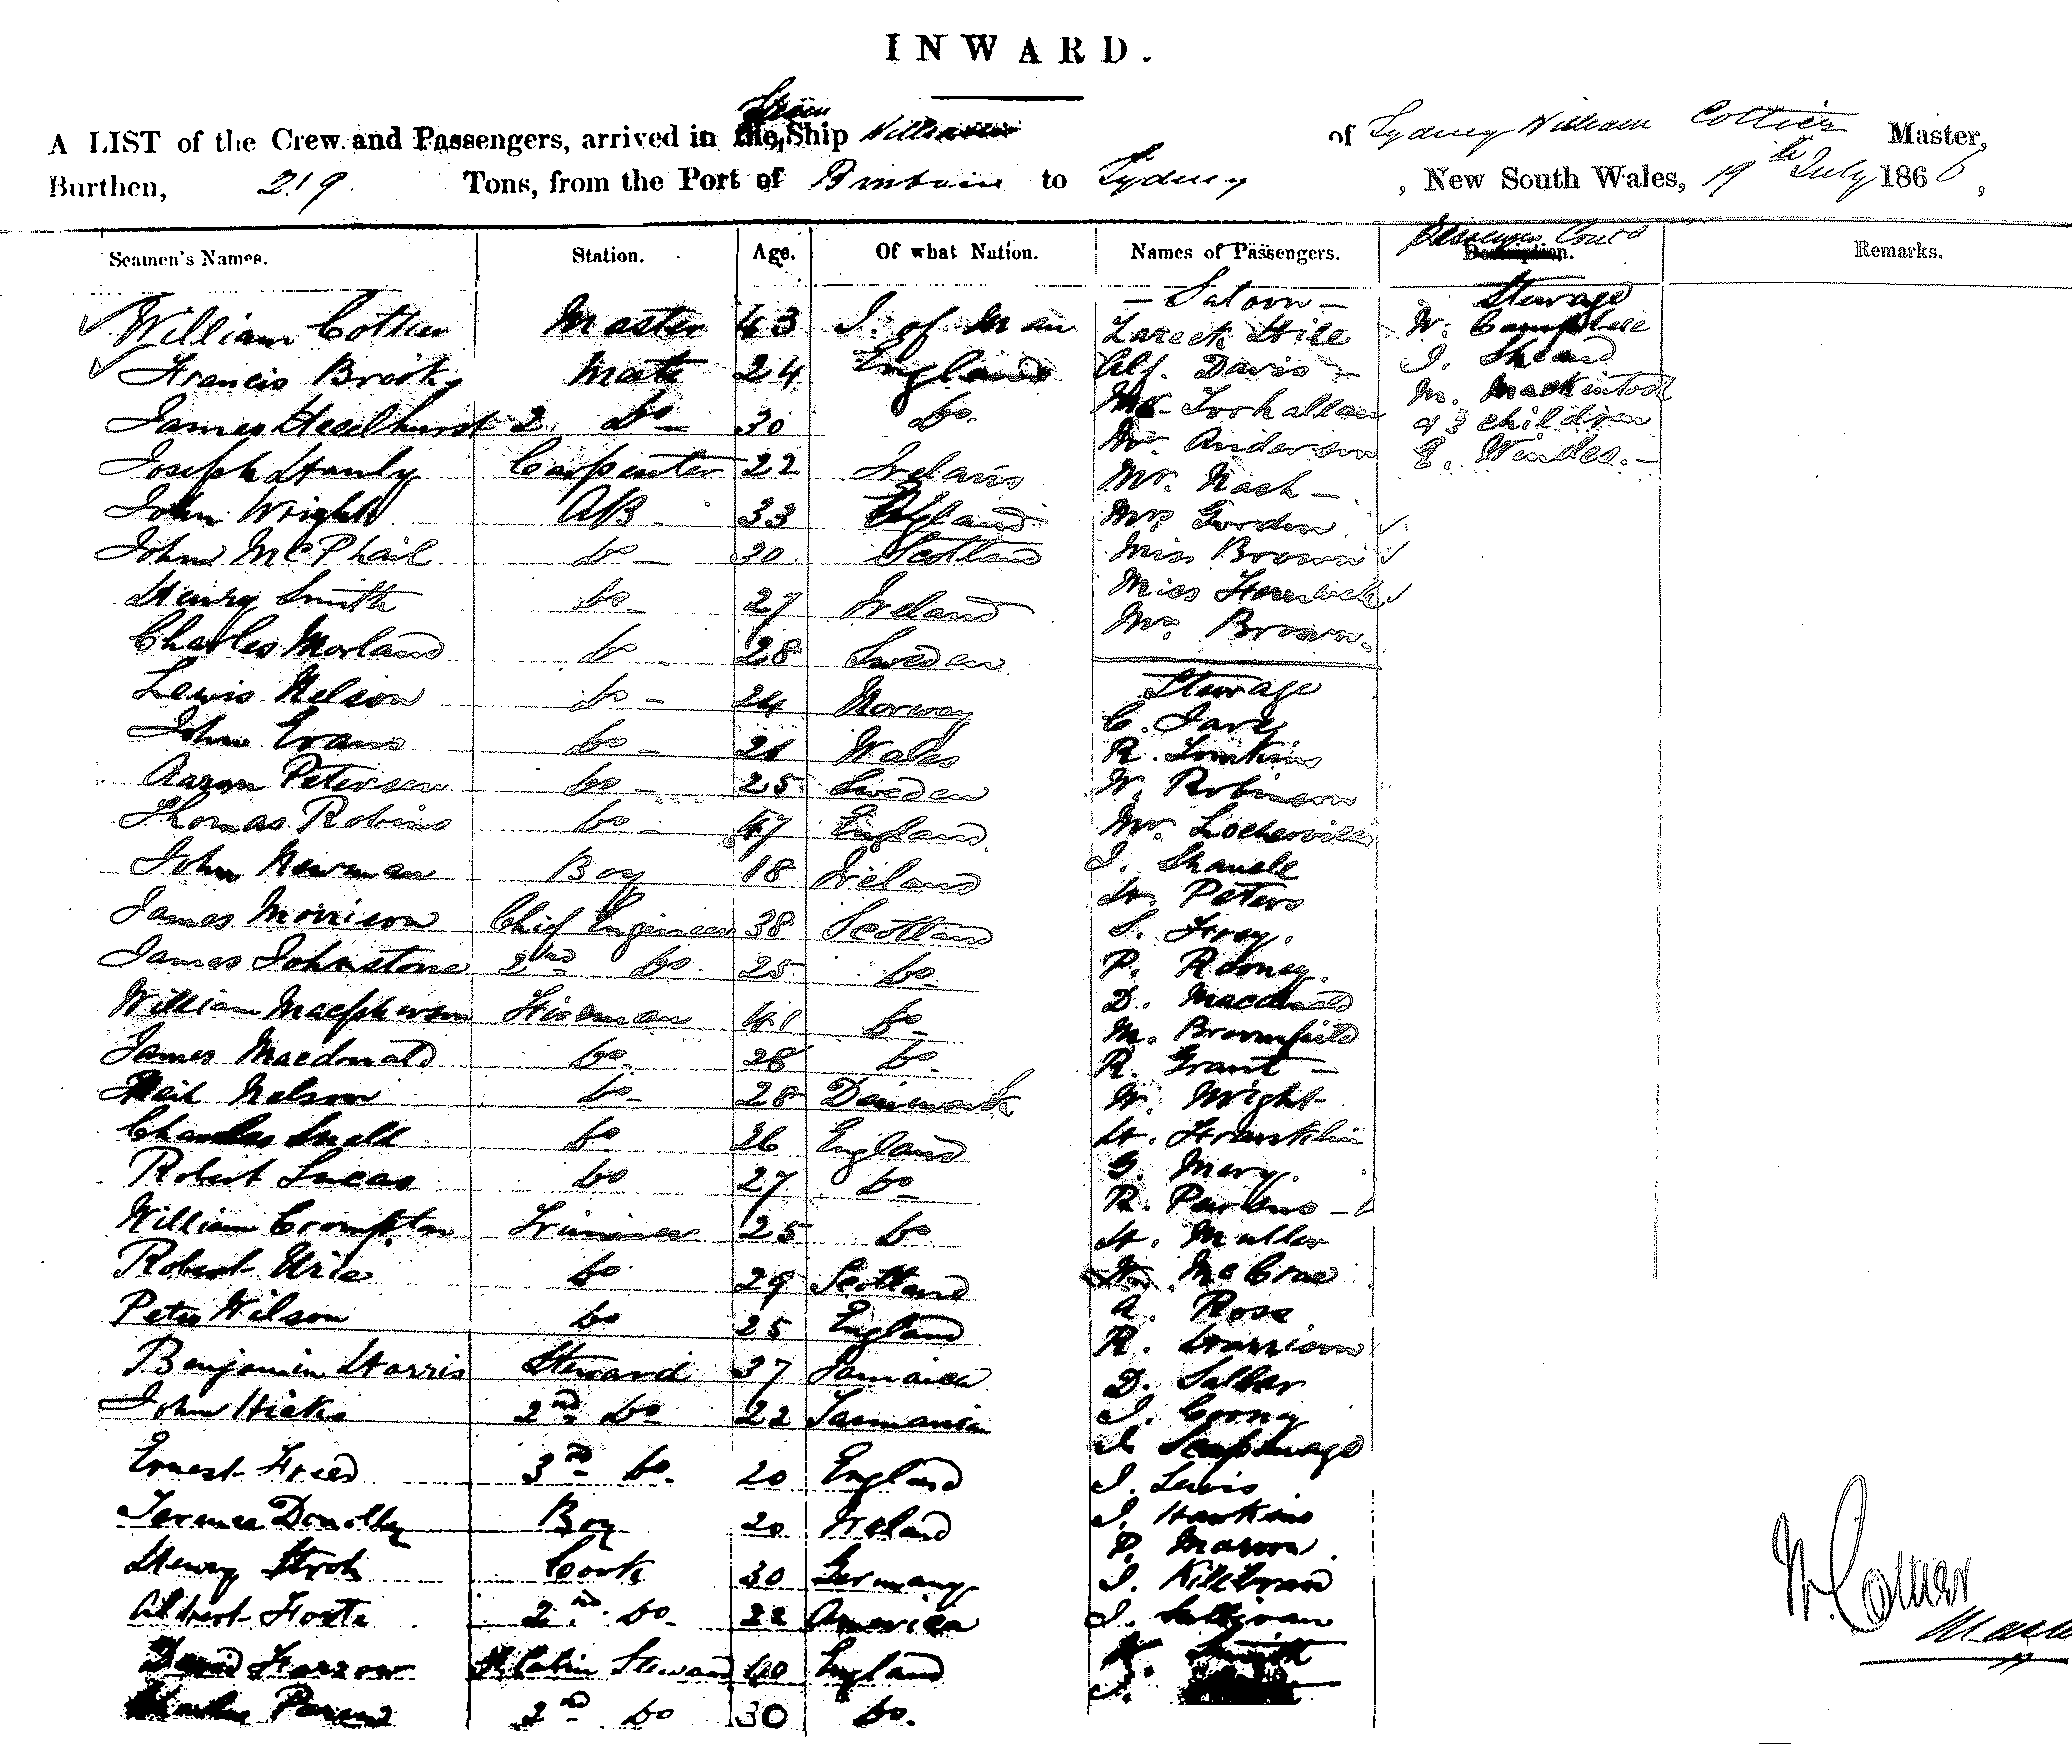 INWARD.
A LIST of the Crew and Passengers, arrived in the Steam Ship of Sydney William Cottier Master,
Burthen, 219 Tons, from the Port of Brisbane to Sydney, New South Wales, 19th July 1866,
Seamen's Names. Station. Age. Of what Nation. Names of Passengers. Passengers Cont'd Description. Remarks.
— Saloon — Steerage
William Cottier Master 43 I. of Man W. Campbell
Francis Mate 24 England Alf. Davis J.
James Heselhurst 2 Do 30 Do. Mr. M. Mackintosh
& 3 children
Joseph Hanly Carpenter 22 Ireland Mr. Anderson E.
John Wright AB 33 England Mr. Nash —
Mrs Gordon
John McPhail Do — 30 Scotland Miss Brown
Henry Smith Do — 27 Ireland Miss
Charles Morland Do — 28 Sweden Mrs Brown.
Lewis Nelson Do — 24 Norway Steerage
C.
John Evans Do — 21 Wales R. Tomkins
Aaron Petersen Do — 25 Sweden W. Robinson
Thomas Robins Do — 47 England Mr.
John Newman Boy 18 Ireland J.
H. Peters
James Morrison Chief Engineer 38 Scotland S.
James Johnstone 2nd Do. 25 Do. P. Rooney.
William Macpherson Fireman 41 Do — D. Macdonald
M. Broomfield
James Macdonald Do. 28 Do. R. Grant —
Neil Nelson Do — 28 Dainemark W. Wright
Charles Do 26 England H. Franklin
Robert Lucas Do 27 Do — G.
R.
William Crompton Trimmer 25 Do H. Muller
Robert Urie Do 29 Scotland McCrae
Peter Wilson Do 25 England A. Ross
R. Harrison
Benjamin Harris Steward 37 Jamaica D.
John Hicks 2nd Do 22 Tasmania J.
J.
Ernest Freed 3rd Do. 20 England J. Lewis
Terence Donolly Boy 20 Ireland J. Hawkins
P.
Henry Cook 30 Germany J.
Albert 2nd Do. 22 America J. Sullivan
David Farrow Cabin Steward 40 England Smith
Charles 2nd Do 30 Do. J.
W. Cottier
Master